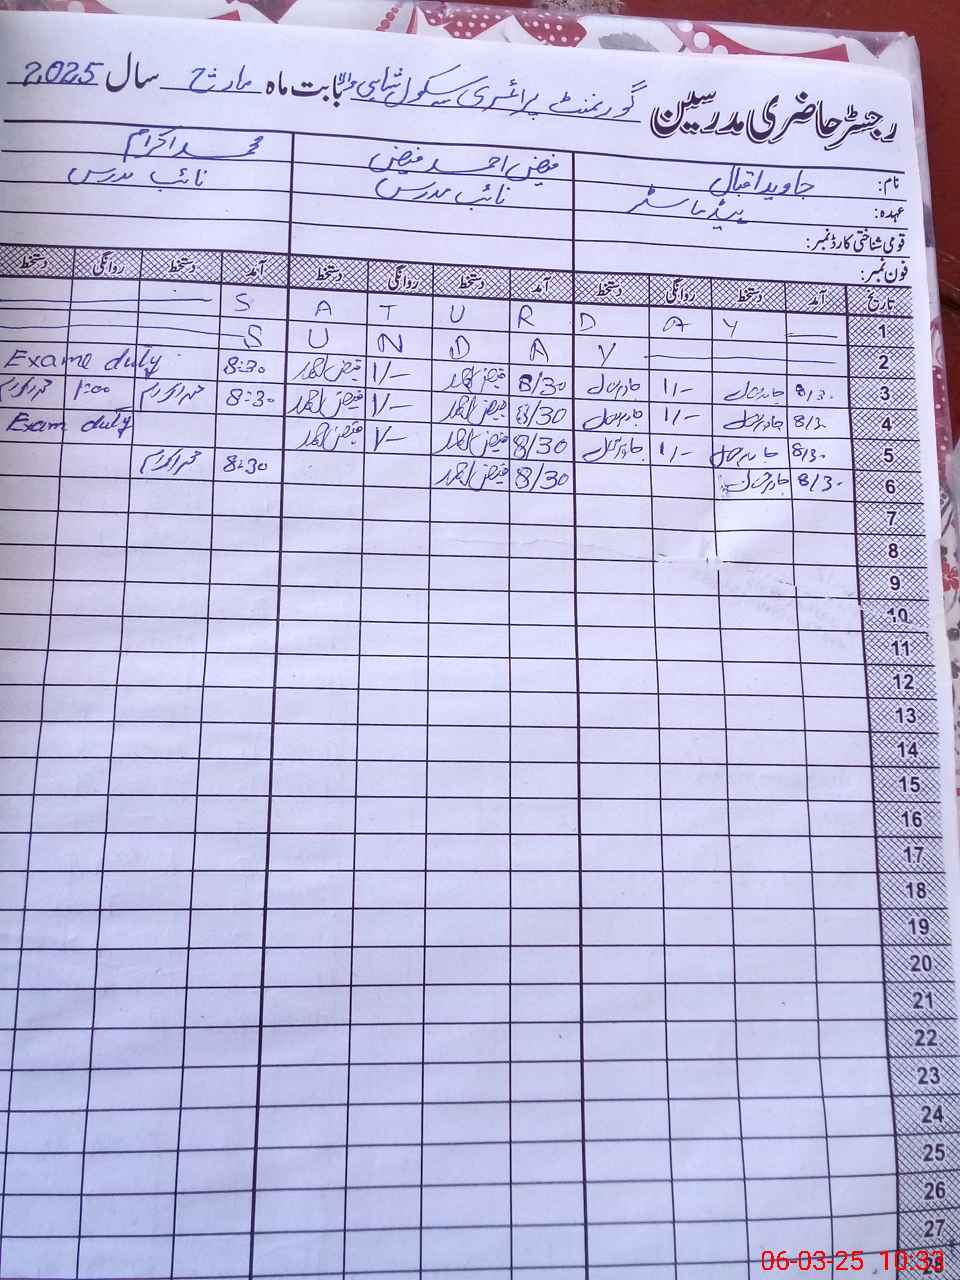 رجسٹر حاضری مدرسین گورنمنٹ پرائمری سکول بابت ماہ مارچ سال 2025
نام: جاویداقبال فیض احمد فیض محمد اکرام
عہدہ: ہیڈ ماسٹر نائب مدرس نائب مدرس
قومی شناختی کارڈ نمبر:
فون نمبر:
تاریخ آمد دستخط روانگی دستخط آمد دستخط روانگی دستخط آمد دستخط روانگی دستخط
1 S A T U R D A Y
2 S U N D A Y
3 8/30 جاویداقبال 1/- جاویداقبال 8/30 فیض احمد 1/- فیض احمد 8:30 Exame duty
4 8/30 جاویداقبال 1/- جاویداقبال 8/30 فیض احمد 1/- فیض احمد 8:30 محمد اکرام 1:00 محمد اکرام
5 8/30 جاویداقبال 1/- جاویداقبال 8/30 فیض احمد 1/- فیض احمد Exam duty
6 8/30 جاویداقبال 8/30 فیض احمد 8:30 محمد اکرام
7
8
9
10
11
12
13
14
15
16
17
18
19
20
21
22
23
24
25
26
27
28
06-03-25 10:33